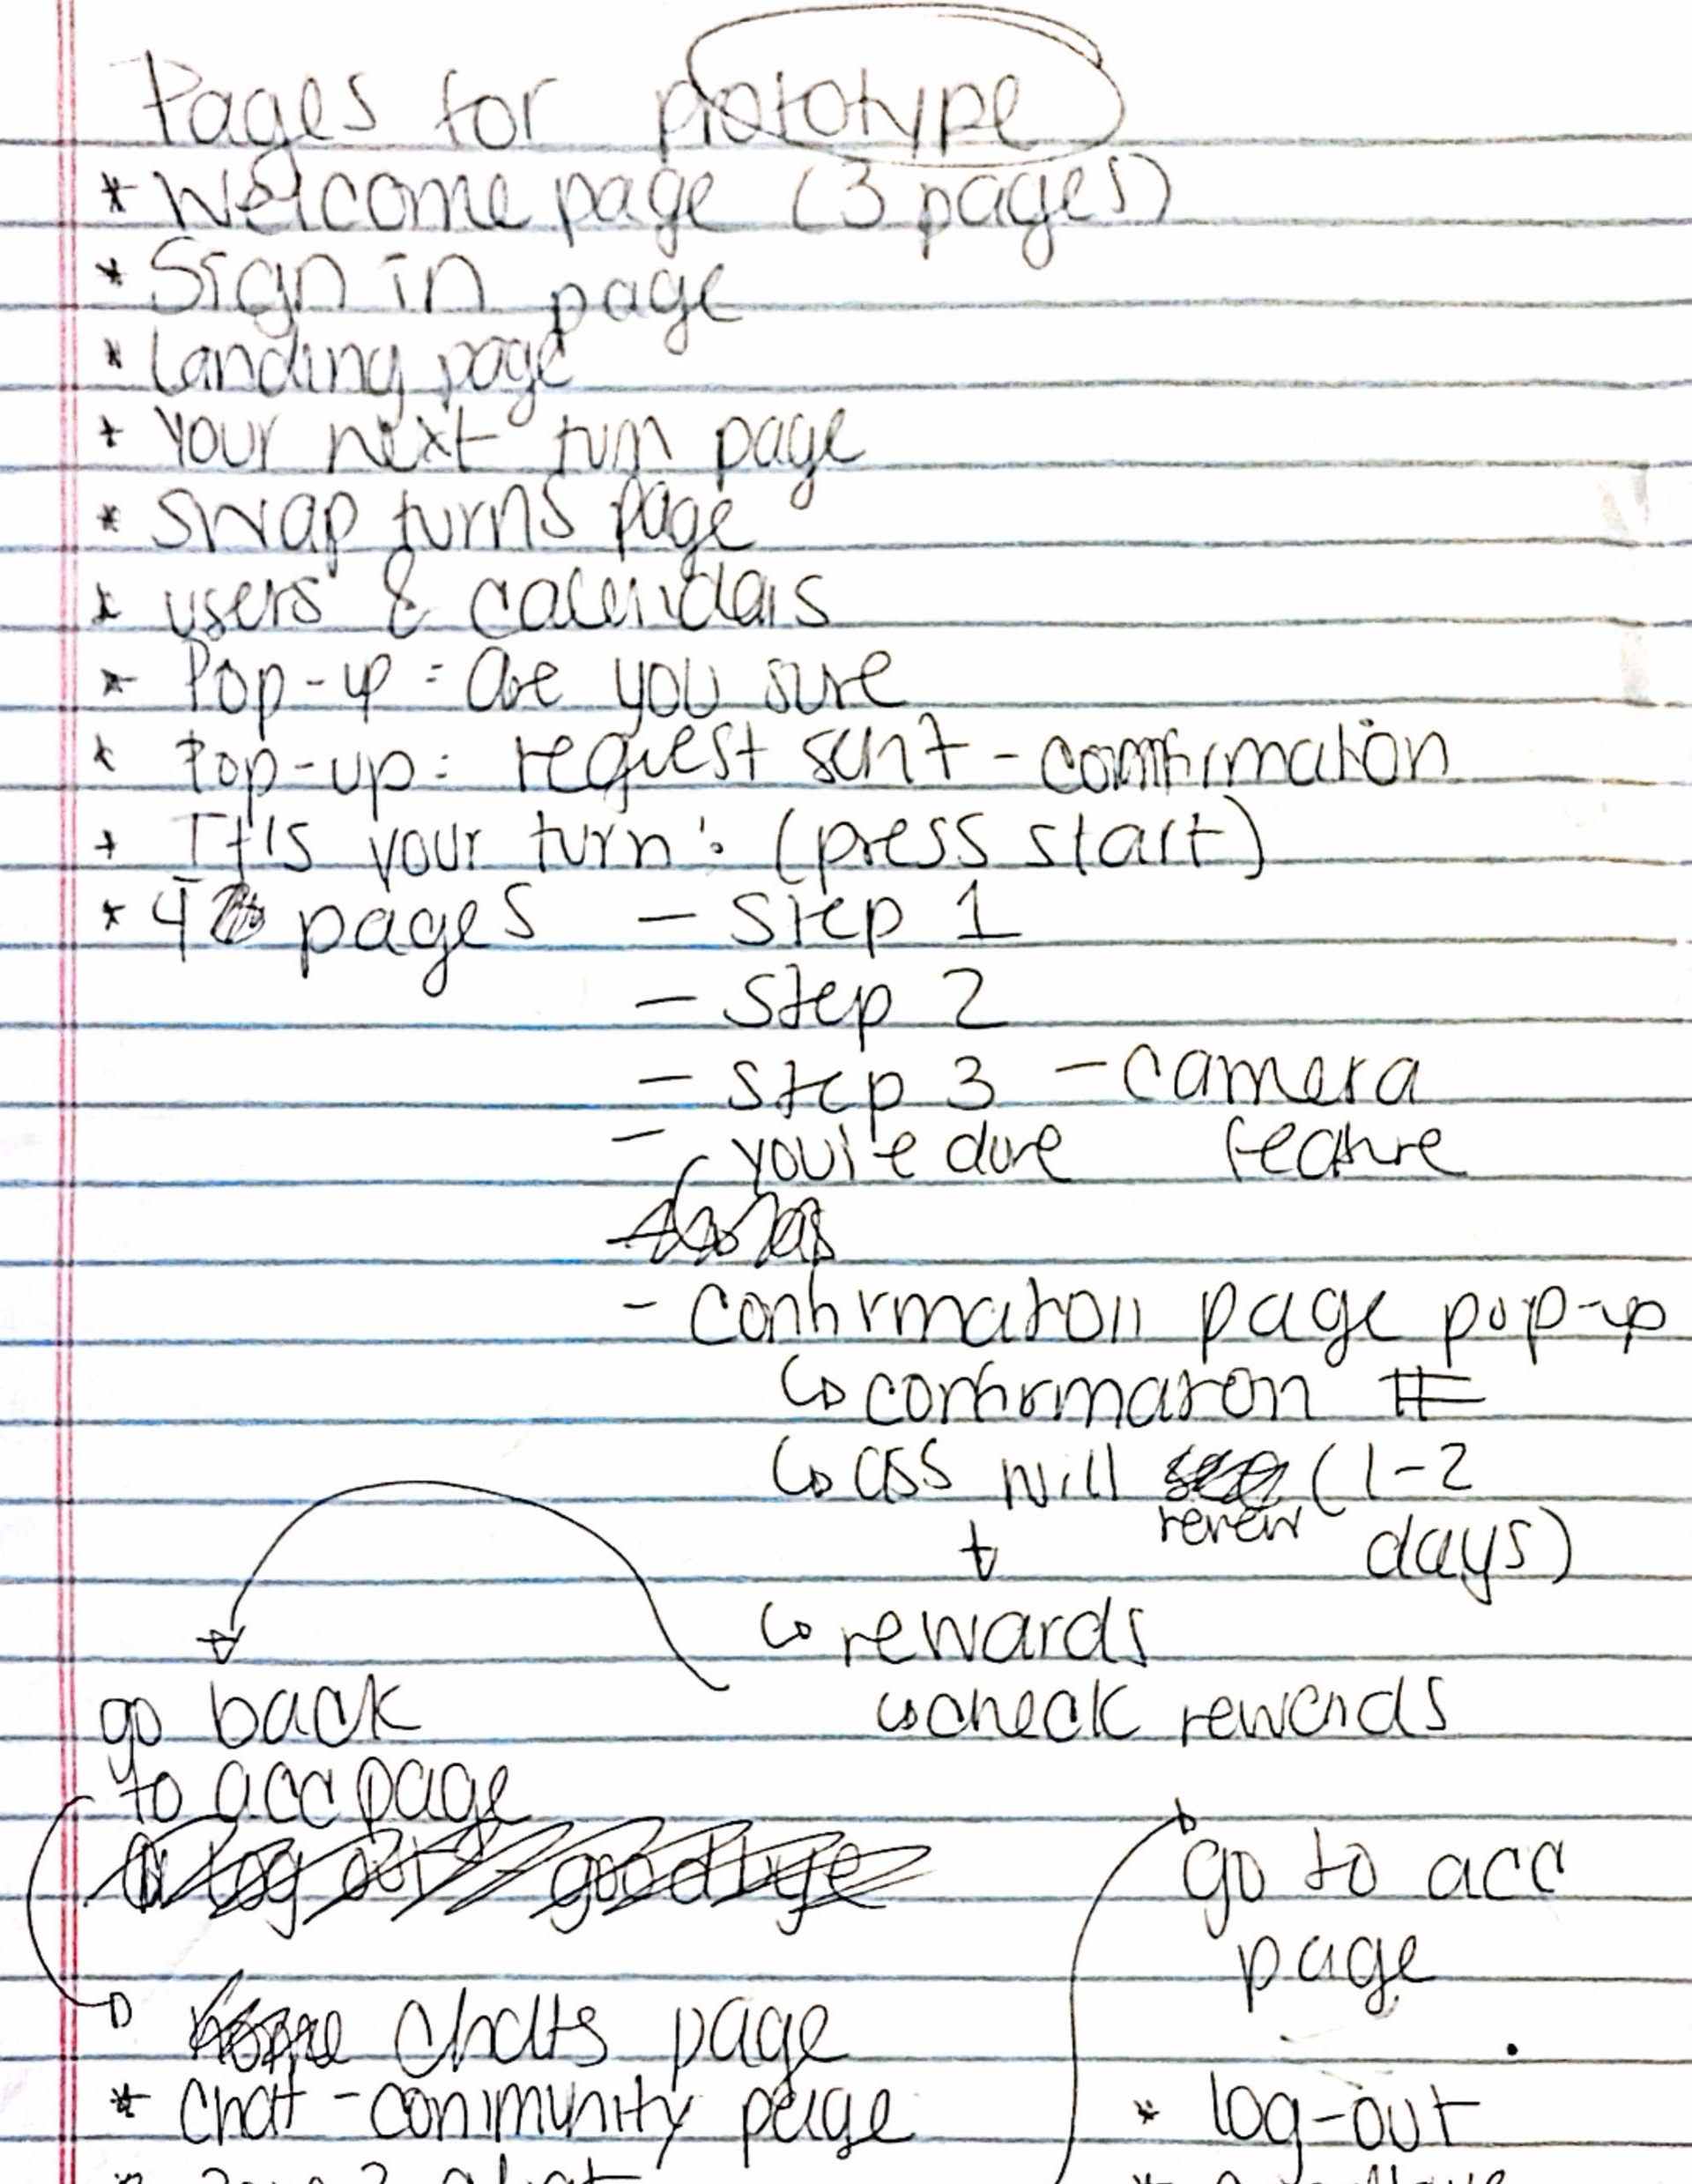 Pages for prototype
* Welcome page (3 pages)
* Sign in page
* Landing page
* Your next turn page
* Swap turns page
* users & calendars
* Pop-up: are you sure
* Pop-up: request sent - confirmation
* It's your turn: (press start)
* 4 pages - Step 1
- Step 2
- Step 3 - camera
- you're done feature
- confirmation page pop-up
↳ confirmation #
↳ ass will review (1-2
days)
↳ rewards
↳ check rewards
go back
to acc page
log out - goodbye
go to acc
page
home chats page
* Chat - community page
* log-out